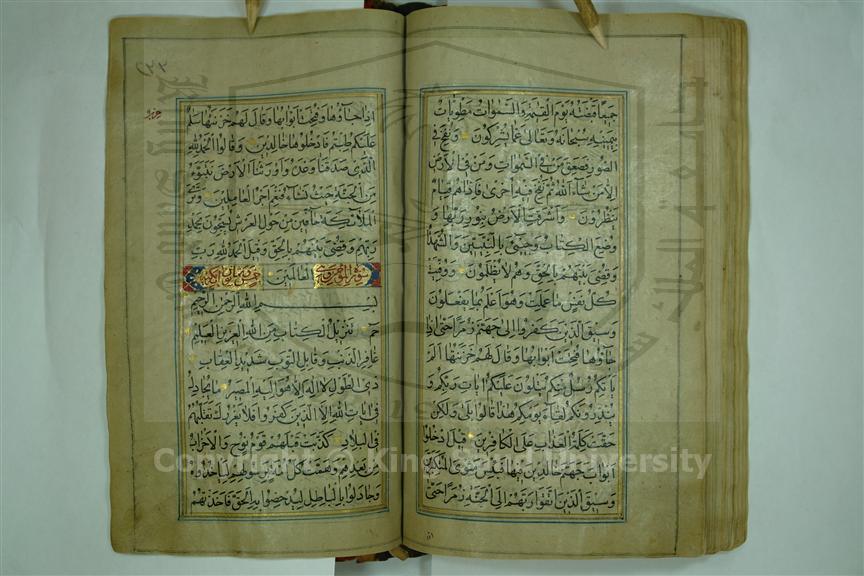 جميعا قبضته يوم القيمة والسموات مطويات
بيمينه سبحانه وتعالى عما يشركون ونفخ في
الصور فصعق من في السموات ومن في الارض
الا من شاء الله ثم نفخ فيه اخرى فاذا هم قيام
ينظرون واشرقت الارض بنور ربها و
وضع الكتاب وجيئ بالنبيين والشهدا
وقضى بينهم بالحق وهم لا يظلمون ووفيت
كل نفس ما عملت وهو اعلم بما يفعلون
وسيق الذين كفروا الى جهنم زمرا حتى اذا
جاؤها فتحت ابوابها وقال لهم خزنتها الم
ياتكم رسل منكم يتلون عليكم ايات ربكم و
ينذرونكم لقاء يومكم هذا قالوا بلى ولكن
حقت كلمة العذاب على الكافرين قيل ادخلوا
ابواب جهنم خالدين فيها فبئس مثوى المتكبرين
وسيق الذين اتقوا ربهم الى الجنة زمرا حتى
٤٢٣
اذا جاؤها وفتحت ابوابها وقال لهم خزنتها سلم
عليكم طبتم فادخلوها خالدين وقالوا الحمد لله
الذي صدقنا وعده واورثنا الارض نتبوء
من الجنة حيث نشاء فنعم اجر العاملين وترى
الملائكة حافين من حول العرش يسبحون بحمد
ربهم وقضى بينهم بالحق وقيل الحمد لله رب
العالمين سورة المؤمن
بسم الله الرحمن الرحيم
حم تنزيل الكتاب من الله العزيز العليم
غافر الذنب وقابل التوب شديد العقاب
ذي الطول لا اله الا هو اليه المصير ما يجادل
في ايات الله الا الذين كفروا فلا يغررك تقلبهم
في البلاد كذبت قبلهم قوم نوح والاحزاب
من بعدهم وهمت كل امة برسولهم لياخذوه
وجادلوا بالباطل ليدحضوا به الحق فاخذتهم
Copyright © King Saud University